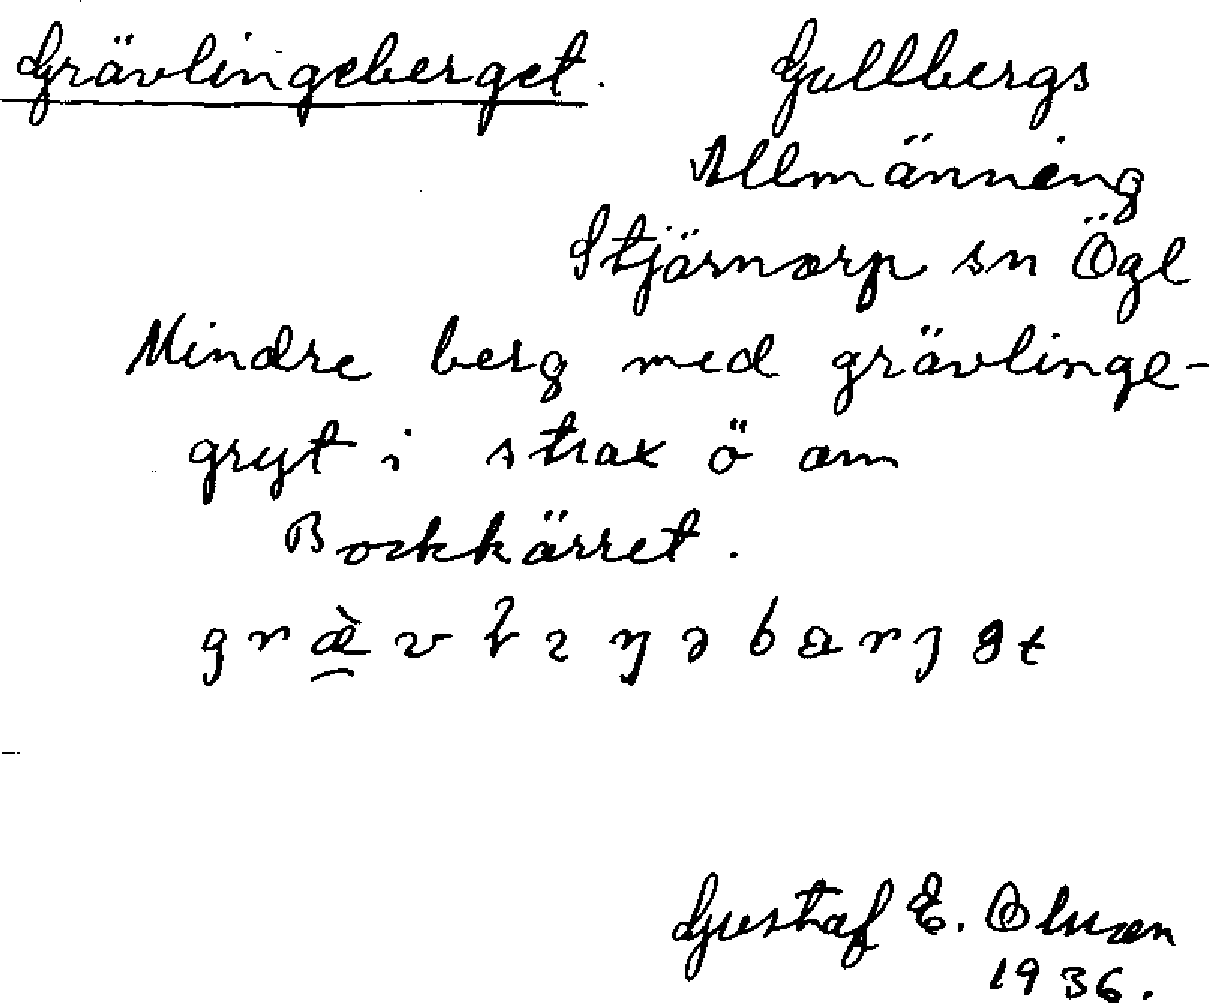 Grävlingeberget. Gullbergs
Allmänning
Stjärnorp sn Ögl
Mindre berg med grävlinge-
gryt i strax ö om
Bockkärret.
Gustaf E. Olsson
1936.